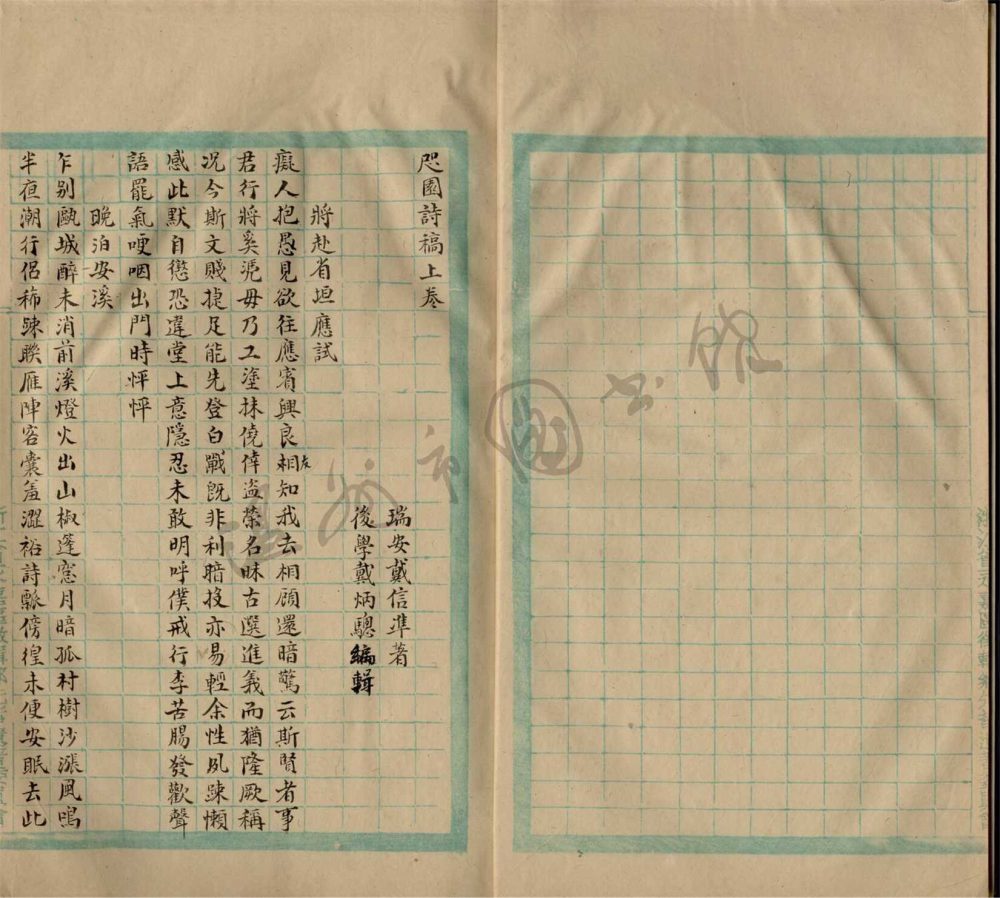 咫園詩稿上卷
瑞安戴信準著
後學戴炳驄編輯
將赴省垣應試
癡人抱愚見欲往應賓興良相知我去相顧還暗驚云斯賢者事
君行將奚凴毋乃工塗抹僥倖盜榮名昧古選進義而猶隆厥稱
况今斯文賤捷足能先登白戰旣非利暗投亦易輕余性夙踈懶
感此默自懲恐違堂上意隱忍未敢明呼僕戒行李苦腸發歡聲
語罷氣哽咽出門時怦怦
晚泊安溪
乍别甌城醉未消前溪燈火出山椒蓬窓月暗孤村樹沙漲風鳴
半夜潮行侶稀踈聯雁陣客囊羞澀裕詩瓢傍徨未便安眠去此
溫州市圖書館